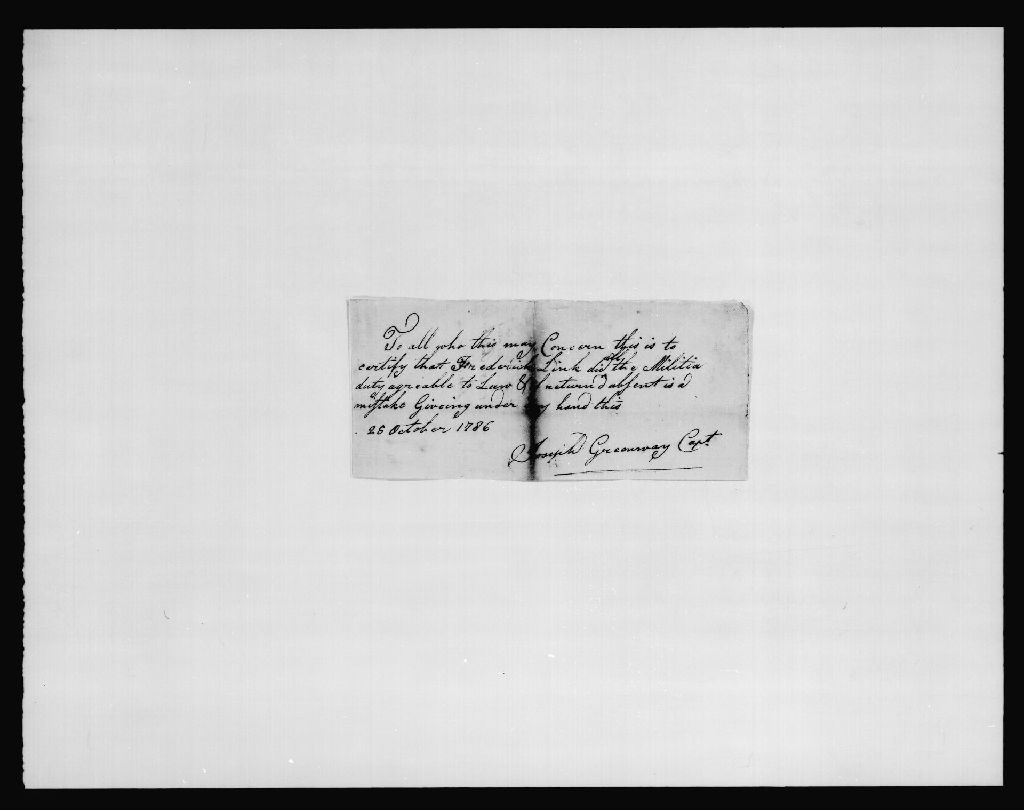 To all who this may Concern this is to
certify that Frederick Link did all the Militia
duty agreable to Law & returnd absent is a
mistake Giveing under my hand this
25 October 1786
Joseph Greenway Capt